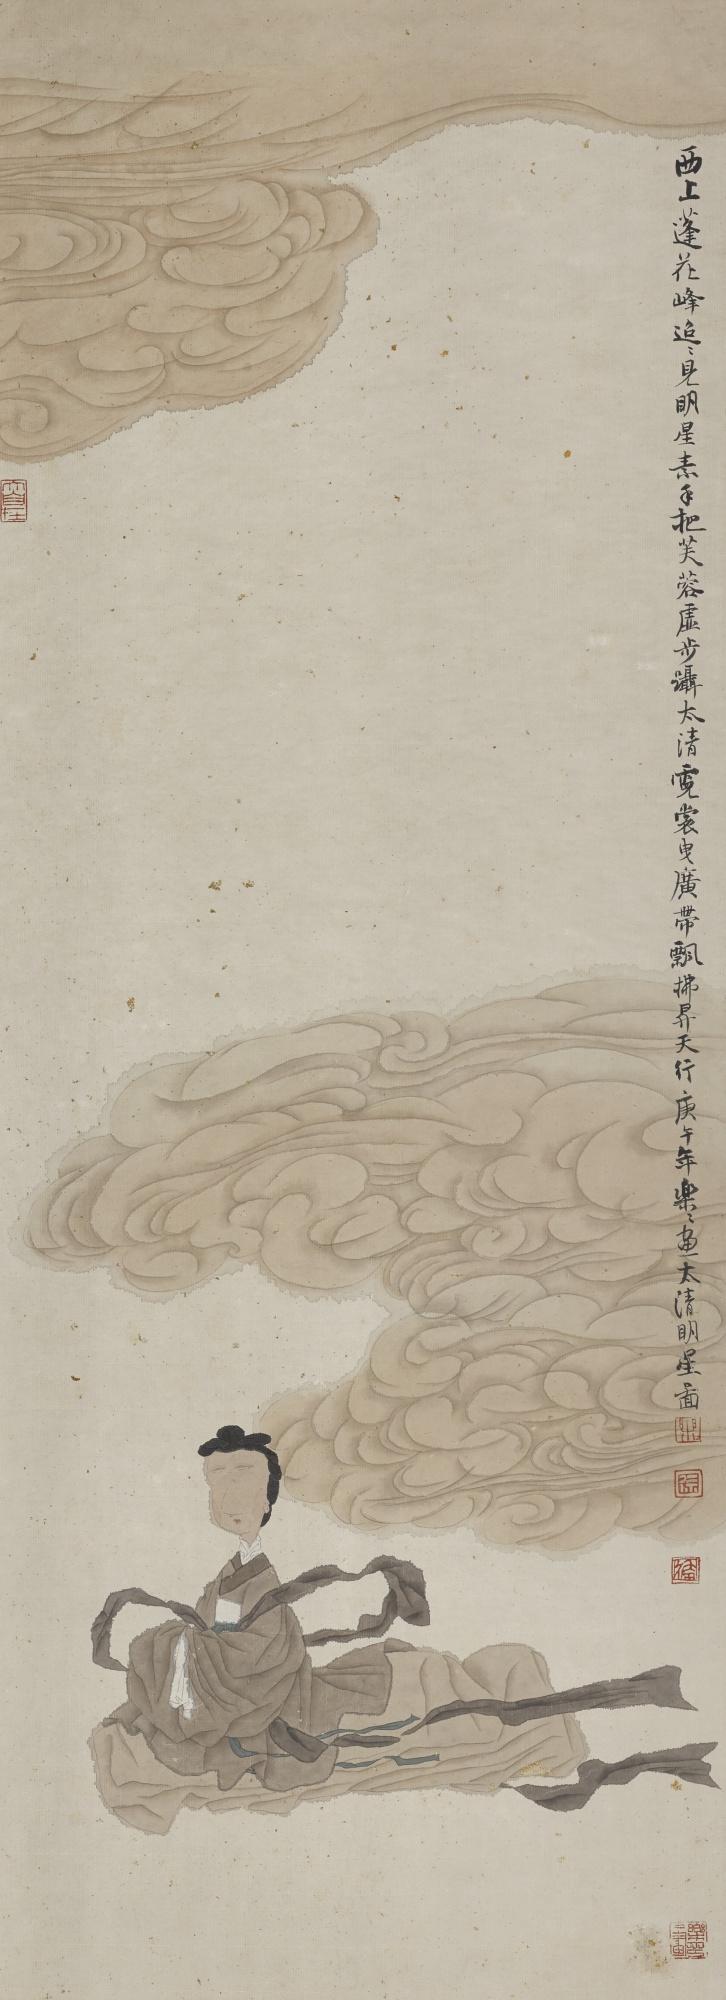 西上蓬花峰迢〻見明星素手把芙蓉虛步躡太清霓裳曳廣帶飄拂昇天行庚午年樂〻畫太清明星圖
大自在